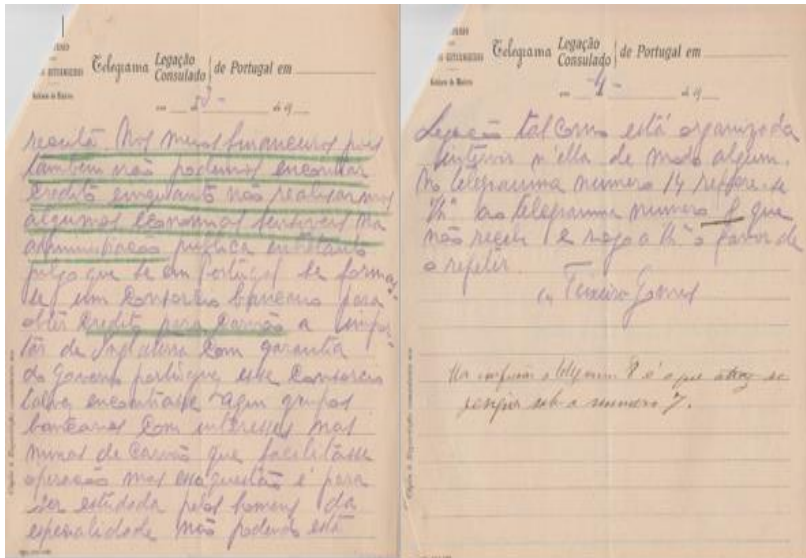 Telegrama Legação Consulado de Portugal em
de 19
receita. Nos meios financeiros pois
também não podemos encontrar
credito emquanto não realisarmos
algumas economias sensiveis na
administração publica entretanto
julgo que se em Portugal se formas-
se um Consorcio bancario para
obter credito para carvão a impor-
tar de Inglaterra com garantia
do Governo portuguez esse Consorcio
talvez encontrasse aqui grupos
bancarios com interesses nas
minas de carvão que facilitasse
operação mas essa questão é para
ser estudada pelos homens da
especialidade não podendo esta
Telegrama Legação Consulado de Portugal em
- 4 -
de 19
Legação tal como está organizada
intervir n'ella de modo algum.
No telegramma numero 14 refere-se
V. Exª ao telegramma numero 8 que
não recebi e rogo a V. Exª o favor de
o repetir.
(a) Teixeira Gomes
telegrama 8 é o que
sob o numero 7.